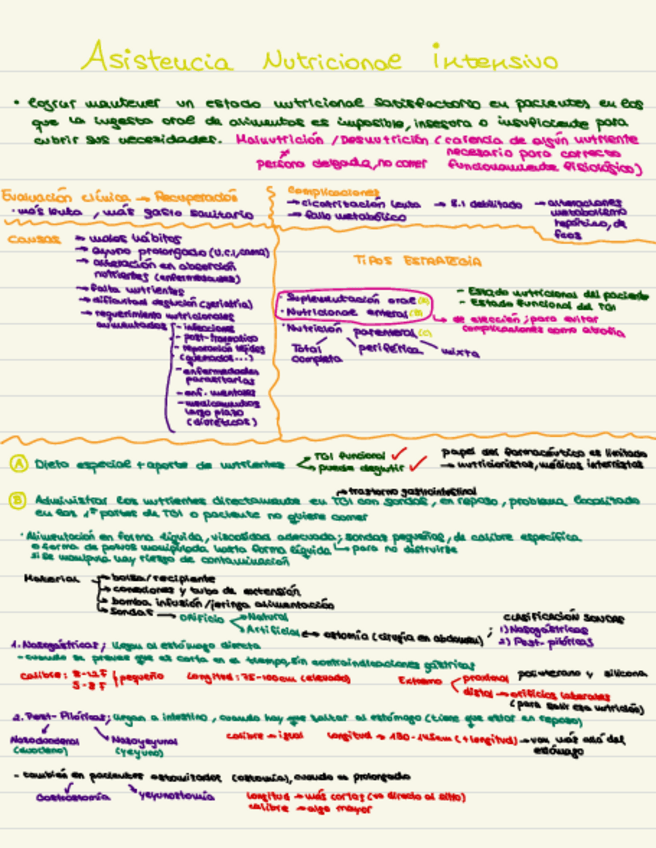 Asistencia Nutricional intensivo
• lograr mantener un estado nutricional satisfactorio en pacientes en los
que la ingesta oral de alimentos es imposible, insegura o insuficiente para
cubrir sus necesidades. Malnutrición / Desnutrición (carencia de algún nutriente
necesario para correcto
persona delgada, no comer funcionamiento fisiológico)
Evaluación clínica → Recuperación
· más lenta, más gasto sanitario
Complicaciones
→ cicatrización lenta → S.I debilitado → alteraciones
metabolismo
hepático, de
→ fallo metabólico
Causas → malos hábitos
→ ayuno prolongado (U.C.I, coma)
→ alteración en absorción
nutrientes (enfermedades)
→ falta nutrientes
→ dificultad deglución (geriatría)
→ requerimiento nutricionales
aumentados
- infecciones
- post-traumático
- reparación tejidos
(quemados...)
- enfermedades
parasitarias
- enf. mentales
- medicamentos
largo plazo
(diuréticos)
TIPOS ESTRATEGIA
· Suplementación oral (A)
· Nutricional enteral (B)
· Nutrición parenteral (C)
Total periférica mixta
completa
- Estado nutricional del paciente
- Estado funcional del TGI
→ de elección; para evitar
complicaciones como atrofia
(A) Dieta especial + aporte de nutrientes
TGI funcional ✓
puede deglutir ✓
papel del farmacéutico es limitado
→ nutricionistas, médicos internistas
→ trastorno gastrointestinal
(B) Administrar los nutrientes directamente en TGI con sondas, en reposo, problema localizado
en las 1ª partes de TGI o paciente no quiere comer
· Alimentación en forma líquida, viscosidad adecuada; sondas pequeñas, de calibre específica
o forma de polvos manipulada hasta forma líquida → para no obstruirse
si se manipula hay riesgo de contaminación
Material → bolsa/recipiente
→ conexiones y tubo de extensión
→ bomba infusión/jeringa alimentación
→ Sondas → orificio Natural
Artificial → ostomía (cirugía en abdomen);
CLASIFICACIÓN SONDAS
1) Nasogástricas
2) Post-pilóricas
1. Nasogástricas; llegan al estómago directo
- cuando se prevee que es corta en el tiempo, sin contraindicaciones gástricas
calibre: 8-12F
5-8F pequeño longitud: 75-100cm (elevado)
Extremo proximal poliuretano y silicona
distal → orificios laterales
(para salir esa nutrición)
2. Post-Pilóricas; llegan a intestino, cuando hay que saltar al estómago (tiene que estar en reposo)
Nasoduodenal Nasoyeyunal
(duodeno) (yeyuno)
calibre → igual longitud → 180-145cm (+longitud) → van más allá del
estómago
- también en pacientes ostomizados (ostomía), cuando es prolongado
Gastrostomía yeyunostomía
longitud → más cortas (va directo al sitio)
calibre → algo mayor